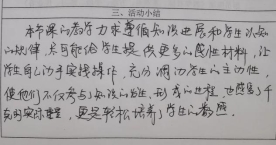 三、活动小结
本节课的教学力求遵循知识进展和学生认知
的规律，尽可能给学生提供更多的感性材料，让
学生自己动手实践操作，充分调动学生的主动性，
使他们不仅参与了知识的发生，形成的过程，也感受了千
克的实际重量，更是轻松培养了学生的数感．